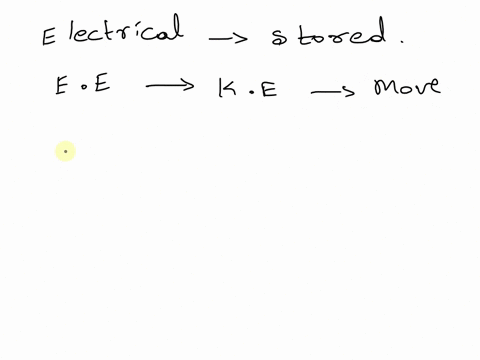 Electrical → stored.
E.E → K.E → Move